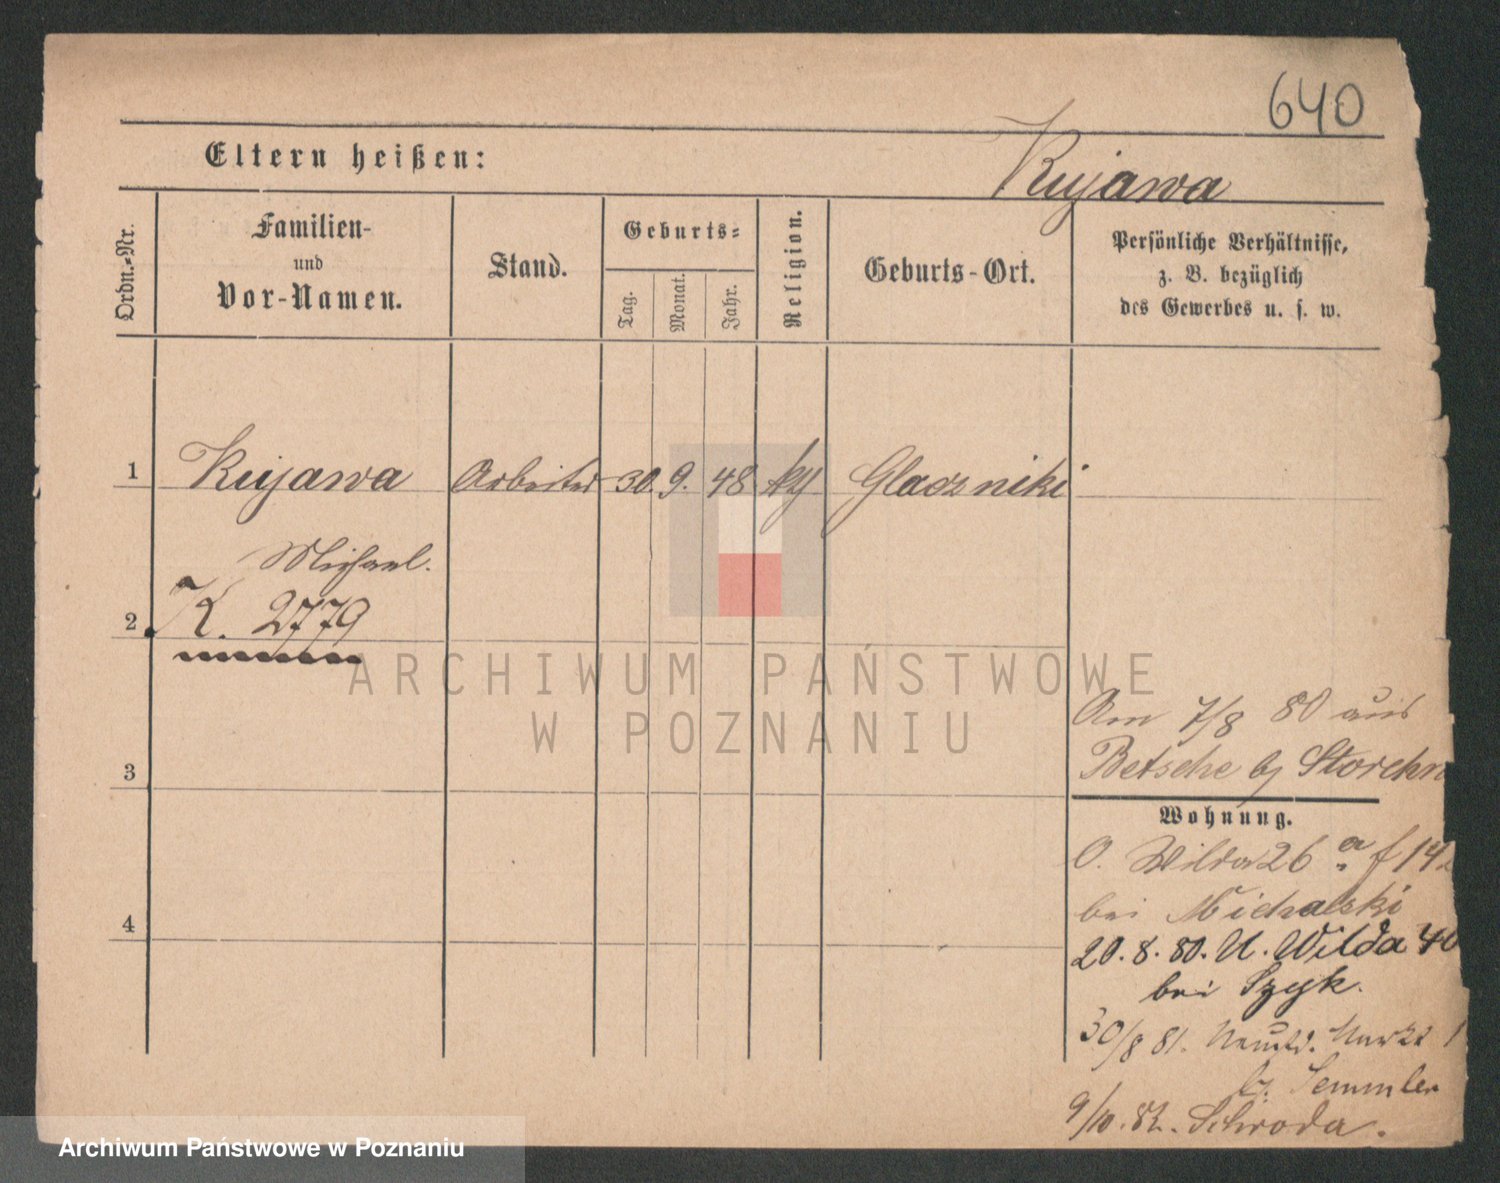 640
Eltern heißen:
Kujawa
Ordn.-Nr.
Familien-
und
Vor-Namen.
Stand.
Geburts-
Tag.
Monat.
Jahr.
Religion.
Geburts-Ort.
Persönliche Verhältnisse,
z. B. bezüglich
des Gewerbes u. s. w.
1 Kujawa Arbeiter 30. 9. 48 Glaczniki
Michael.
2 K. 2779
ARCHIWUM PAŃSTWOWE
W POZNANIU
Am 7/8 80 aus
3
Betsche b/ Storchn
Wohnung.
O. Wilda 26 a f 142
bei Michalski
4
20. 8. 80. U. Wilda 40
bei Szyk.
30/8 81. Neust. Markt 1
b. Semmler
9/10. 82. Schroda.
Archiwum Państwowe w Poznaniu